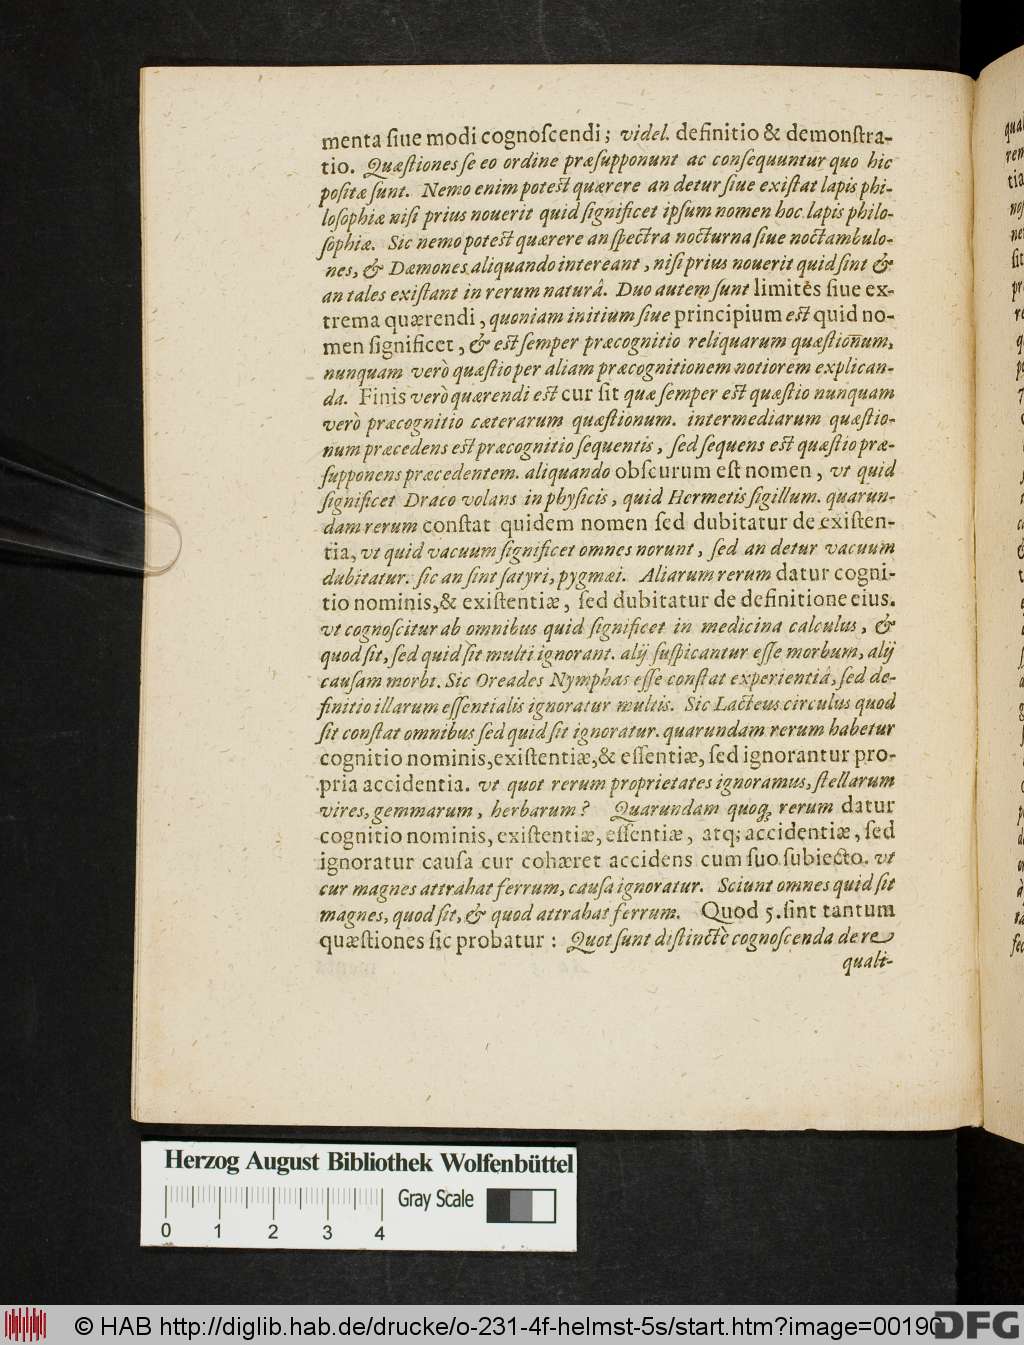 menta ſiue modi cognoſcendi; videl. definitio & demonſtra-
tio. Quæſtiones ſe eo ordine præſupponunt ac conſequuntur quo hic
poſitæ ſunt. Nemo enim poteſt quærere an detur ſiue exiſtat lapis phi-
loſophiæ niſi prius nouerit quid ſignificet ipſum nomen hoc lapis philo-
ſophiæ. Sic nemo poteſt quærere an ſpectra nocturna ſiue noctambulo-
nes, & Dæmones aliquando intereant, niſi prius nouerit quid ſint &
an tales exiſtant in rerum naturâ. Duo autem ſunt limites ſiue ex-
trema quærendi, quoniam initium ſiue principium eſt quid no-
men ſignificet, & eſt ſemper præcognitio reliquarum quæſtionum,
nunquam verò quæſtio per aliam præcognitionem notiorem explican-
da. Finis verò quærendi eſt cur ſit quæ ſemper eſt quæſtio nunquam
verò præcognitio cæterarum quæſtionum. intermediarum quæſtio-
num præcedens eſt præcognitio ſequentis, ſed ſequens eſt quæſtio præ-
ſupponens præcedentem. aliquando obſcurum eſt nomen, vt quid
ſignificet Draco volans in phyſicis, quid Hermetis ſigillum. quarun-
dam rerum conſtat quidem nomen ſed dubitatur de exiſten-
tia, vt quid vacuum ſignificet omnes norunt, ſed an detur vacuum
dubitatur. ſic an ſint ſatyri, pygmæi. Aliarum rerum datur cogni-
tio nominis, & exiſtentiæ, ſed dubitatur de definitione eius.
vt cognoſcitur ab omnibus quid ſignificet in medicina calculus, &
quod ſit, ſed quid ſit multi ignorant. alij ſuſpicantur eſſe morbum, alij
cauſam morbi. Sic Oreades Nymphas eſſe conſtat experientiâ, ſed de-
finitio illarum eſſentialis ignoratur multis. Sic Lacteus circulus quod
ſit conſtat omnibus ſed quid ſit ignoratur. quarundam rerum habetur
cognitio nominis, exiſtentiæ, & eſſentiæ, ſed ignorantur pro-
pria accidentia. vt quot rerum proprietates ignoramus, ſtellarum
vires, gemmarum, herbarum? Quarundam quoq; rerum datur
cognitio nominis, exiſtentiæ, eſſentiæ, atq; accidentiæ, ſed
ignoratur cauſa cur cohæret accidens cum ſuo ſubiecto. vt
cur magnes attrahat ferrum, cauſa ignoratur. Sciunt omnes quid ſit
magnes, quod ſit, & quod attrahat ferrum. Quod 5. ſint tantum
quæſtiones ſic probatur: Quot ſunt diſtinctè cognoſcenda de re
quali-
Herzog August Bibliothek Wolfenbüttel
Gray Scale
0 1 2 3 4
© HAB http://diglib.hab.de/drucke/o-231-4f-helmst-5s/start.htm?image=00190
DFG